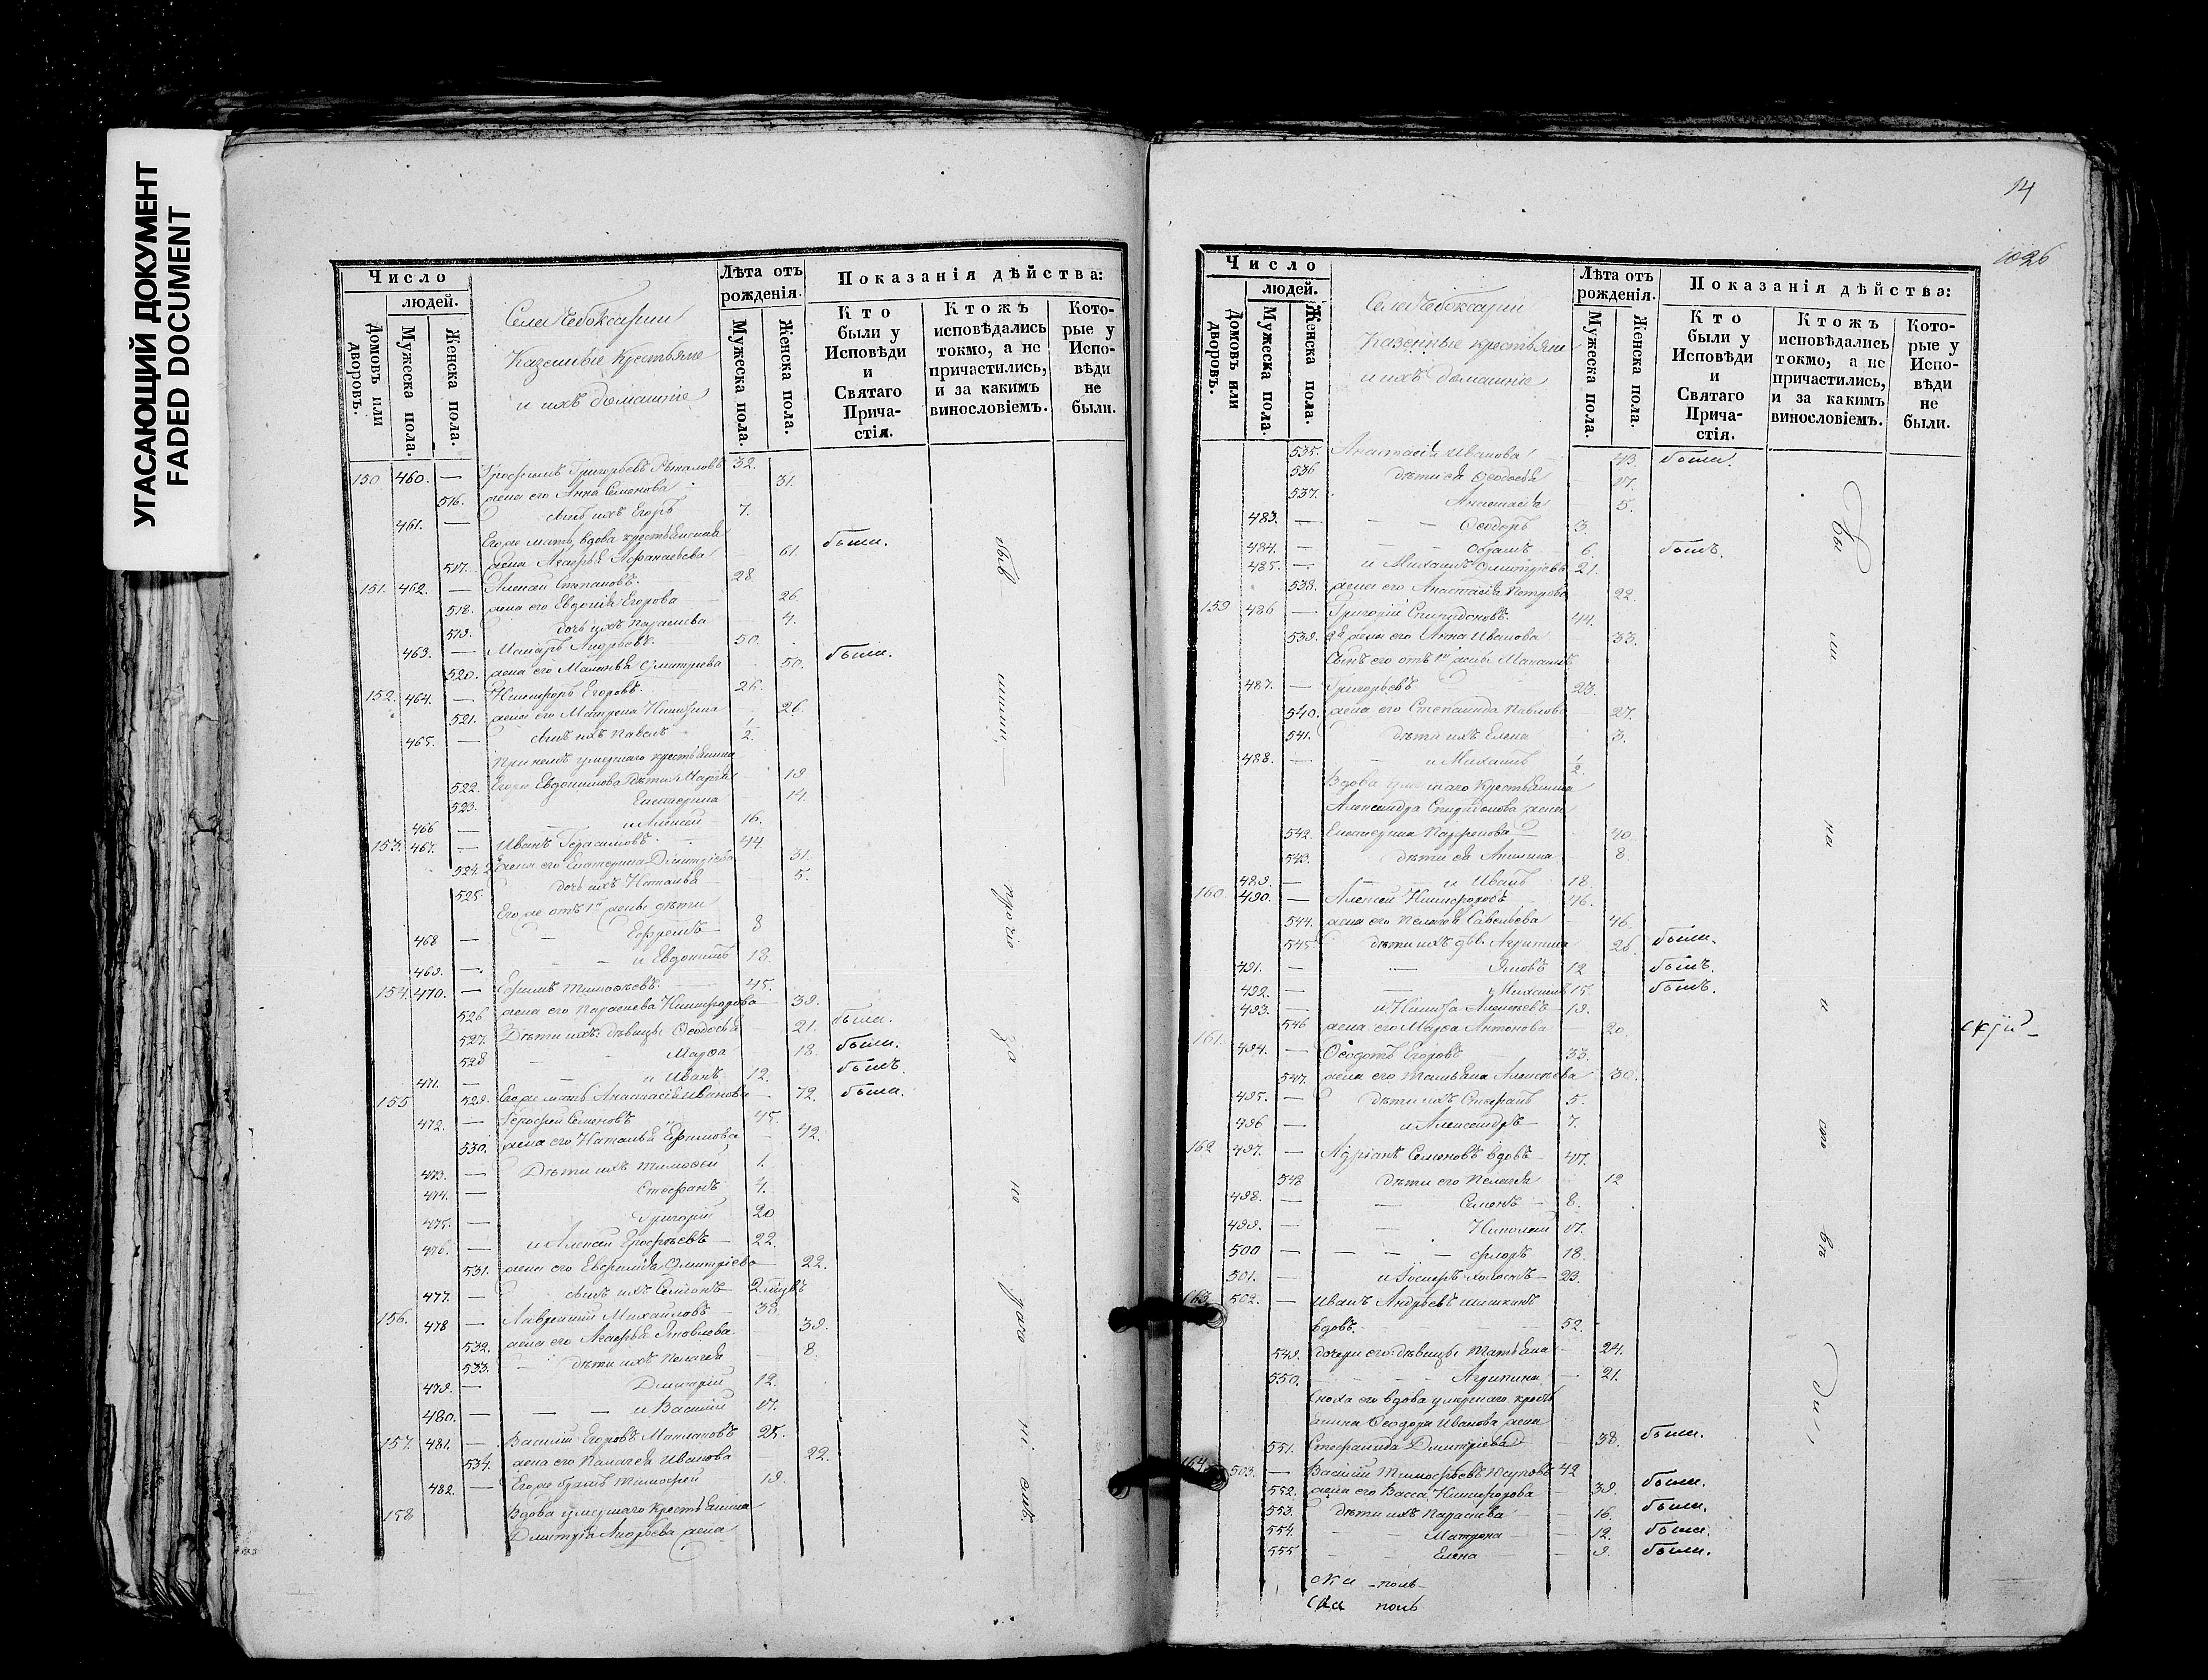 УГАСАЮЩИЙ ДОКУМЕНТ
FADED DOCUMENT
Число
людей.
Домовъ или дворовъ.
Мужеска пола.
Женска пола.
Села Чебоксарки
Казенные крестьяне
и ихъ домашніе
Лѣта отъ рожденія.
Мужеска пола.
Женска пола.
Показанія дѣйства:
Кто были у Исповѣди и Святаго Причастія.
Ктожъ исповѣдались токмо, а не причастились, и за какимъ винословіемъ.
Которые у Исповѣди не были.
150 460. — Григорьевъ 32.
516. жена его Анна Семенова 31.
461. — сынъ ихъ Егоръ 7.
Его же мать, вдова крестьянская
517. жена Агафья Афанасьева 61. были.
151. 462. — Алексей Степановъ 28.
518. жена его Евдокія Егорова 26.
519. дочь ихъ Параскева 4.
463. — Макаръ Андреевъ. 50.
520. жена его Маланья Дмитриева 50. были.
152. 464. — Никифоръ Егоровъ. 26.
521. жена его Матрена Никитина 26.
465. — сынъ ихъ Павелъ 1/2.
При немъ умершаго крестьянина
522. Егора Евдокимова дѣти Марья 19
523. Екатерина 14.
466 — и Алексей 16.
153. 467. — Иванъ Герасимовъ. 44.
524. 2 жена его Екатерина Димитріева 31.
525. дочь ихъ Наталья 5.
Его же отъ 1й жены дѣти
468 — Ефремъ 8
469. — и Евдокимъ 13.
154. 470. — Ефимъ Тимофеевъ. 45.
526 жена его Параскева Никифорова 39.
527. Дѣти ихъ: дѣвицы Феодосья 21. были.
528 Марфа 18. были.
471. — и Иванъ 12. былъ.
155 529. Его же мать Анастасія Иванова 72. была.
472. — Герофей Семеновъ 45.
530. жена его Наталья Ефимова 42.
473. — Дѣти ихъ Тимофей 1.
474. — Стефанъ 4.
475. — Григорій 20
476. — и Алексей Ерофеевъ 22.
531. жена его Евфимія Дмитріева 22.
477. — сынъ ихъ Семіонъ 2 мцвъ
156. 478 — Лаврентій Михайловъ 38
532. жена его Агафья Яковлева 39.
533. дѣти ихъ Пелагея 8.
479. — Дмитрій 12.
480. — и Василій 17.
157. 481. — Василій Егоровъ 25.
534. жена его Пелагея Иванова 22.
482. — Его же братъ Тимофей 19.
158 Вдова умершаго крестьянина
Дмитрія Андреева жена
14
1026
Число
людей.
Домовъ или дворовъ.
Мужеска пола.
Женска пола.
Села Чебоксарки
Казенные крестьяне
и ихъ домашніе
Лѣта отъ рожденія.
Мужеска пола.
Женска пола.
Показанія дѣйства:
Кто были у Исповѣди и Святаго Причастія.
Ктожъ исповѣдались токмо, а не причастились, и за какимъ винословіемъ.
Которые у Исповѣди не были.
535. Анастасія Иванова 43. были.
536 дѣти ея Феодосья 17.
537. Анастасія 5.
483. — Феодоръ 3.
484. — 6. былъ.
485. — и Михаилъ Дмитріевъ 21.
538. жена его Анастасія Петрова 22.
159 486 — Григорій Спиридоновъ. 44.
539. 2я жена его Анна Иванова 33.
Сынъ его отъ 1й жены
487. — Григорьевъ 23.
540. жена его Степанида Павлова 27.
541. дѣти ихъ Елена 3.
488. — и Михаилъ 1/2.
Вдова умершаго крестьянина
Александра Спиридонова жена
542. Екатерина Парфенова 40
543. дѣти ея Акилина 8.
489. — и Иванъ 18.
160 490. — Алексей Никифоровъ 46.
544. жена его Пелагея Савельева 46.
545. дѣти ихъ дѣв. Агрипина 26 были.
491. — Яковъ 12 былъ.
492. — Михаилъ 15. былъ.
493. — и Никита Алексеевъ 19.
546 жена его Марфа Антонова 20.
161. 494. — Феодотъ Егоровъ 33.
547. жена его Татьяна Алексеева 30.
495. — дѣти ихъ Стефанъ 5.
496 — и Александръ 7.
162 497. — Адріанъ Семеновъ вдовъ 47.
548 дѣти его Пелагея 12
498. — Семенъ 8.
499. — Николай 17.
500 — Флоръ 18.
501. — и Іосифъ холостъ 23.
163 502. — Иванъ Андреевъ Шишкинъ
вдовъ. 52.
549. дочери его: дѣвицы Татьяна 24.
550. Агрипина 21.
Сноха его вдова умершаго кресть
янина Феодора Иванова жена
551. Стефанида Дмитріева 38. были.
164. 503. — Василій Тимофеевъ 42
552. жена его Васса Никифорова 39. были.
553. дѣти ихъ Параскева 16. были.
554. Матрона 12. были.
555 Елена 9. были.